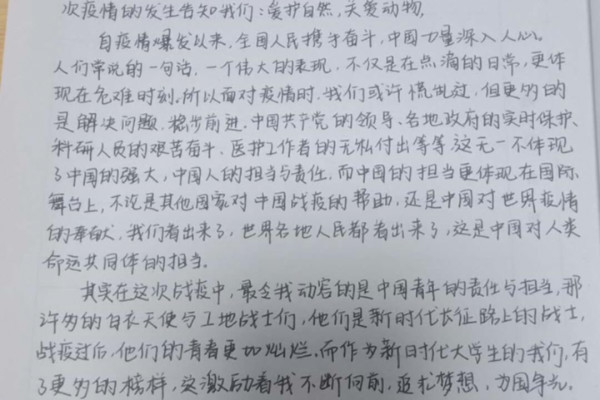 次疫情的发生告知我们：爱护自然，关爱动物。
自疫情爆发以来，全国人民携手奋斗，中国力量深入人心。
人们常说的一句话，一个伟大的表现，不仅是在点滴的日常，更体
现在危难时刻。所以面对疫情时，我们或许慌乱过，但更多的
是解决问题，稳步前进。中国共产党的领导、各地政府的实时保护、
科研人员的艰苦奋斗、医护工作者的无私付出等等，这无一不体现
了中国的强大，中国人的担当与责任。而中国的担当更体现在国际
舞台上，不论是其他国家对中国战疫的帮助，还是中国对世界疫情
的奉献，我们看出来了，世界各地人民都看出来了，这是中国对人类
命运共同体的担当。
其实在这次战疫中，最令我动容的是中国青年的责任与担当，那
许多的白衣天使与工地战士们，他们是新时代长征路上的战士，
战疫过后，他们的青春更加灿烂。而作为新时代大学生的我们，有
了更多的榜样，这激励着我不断向前，追求梦想，为国争光。